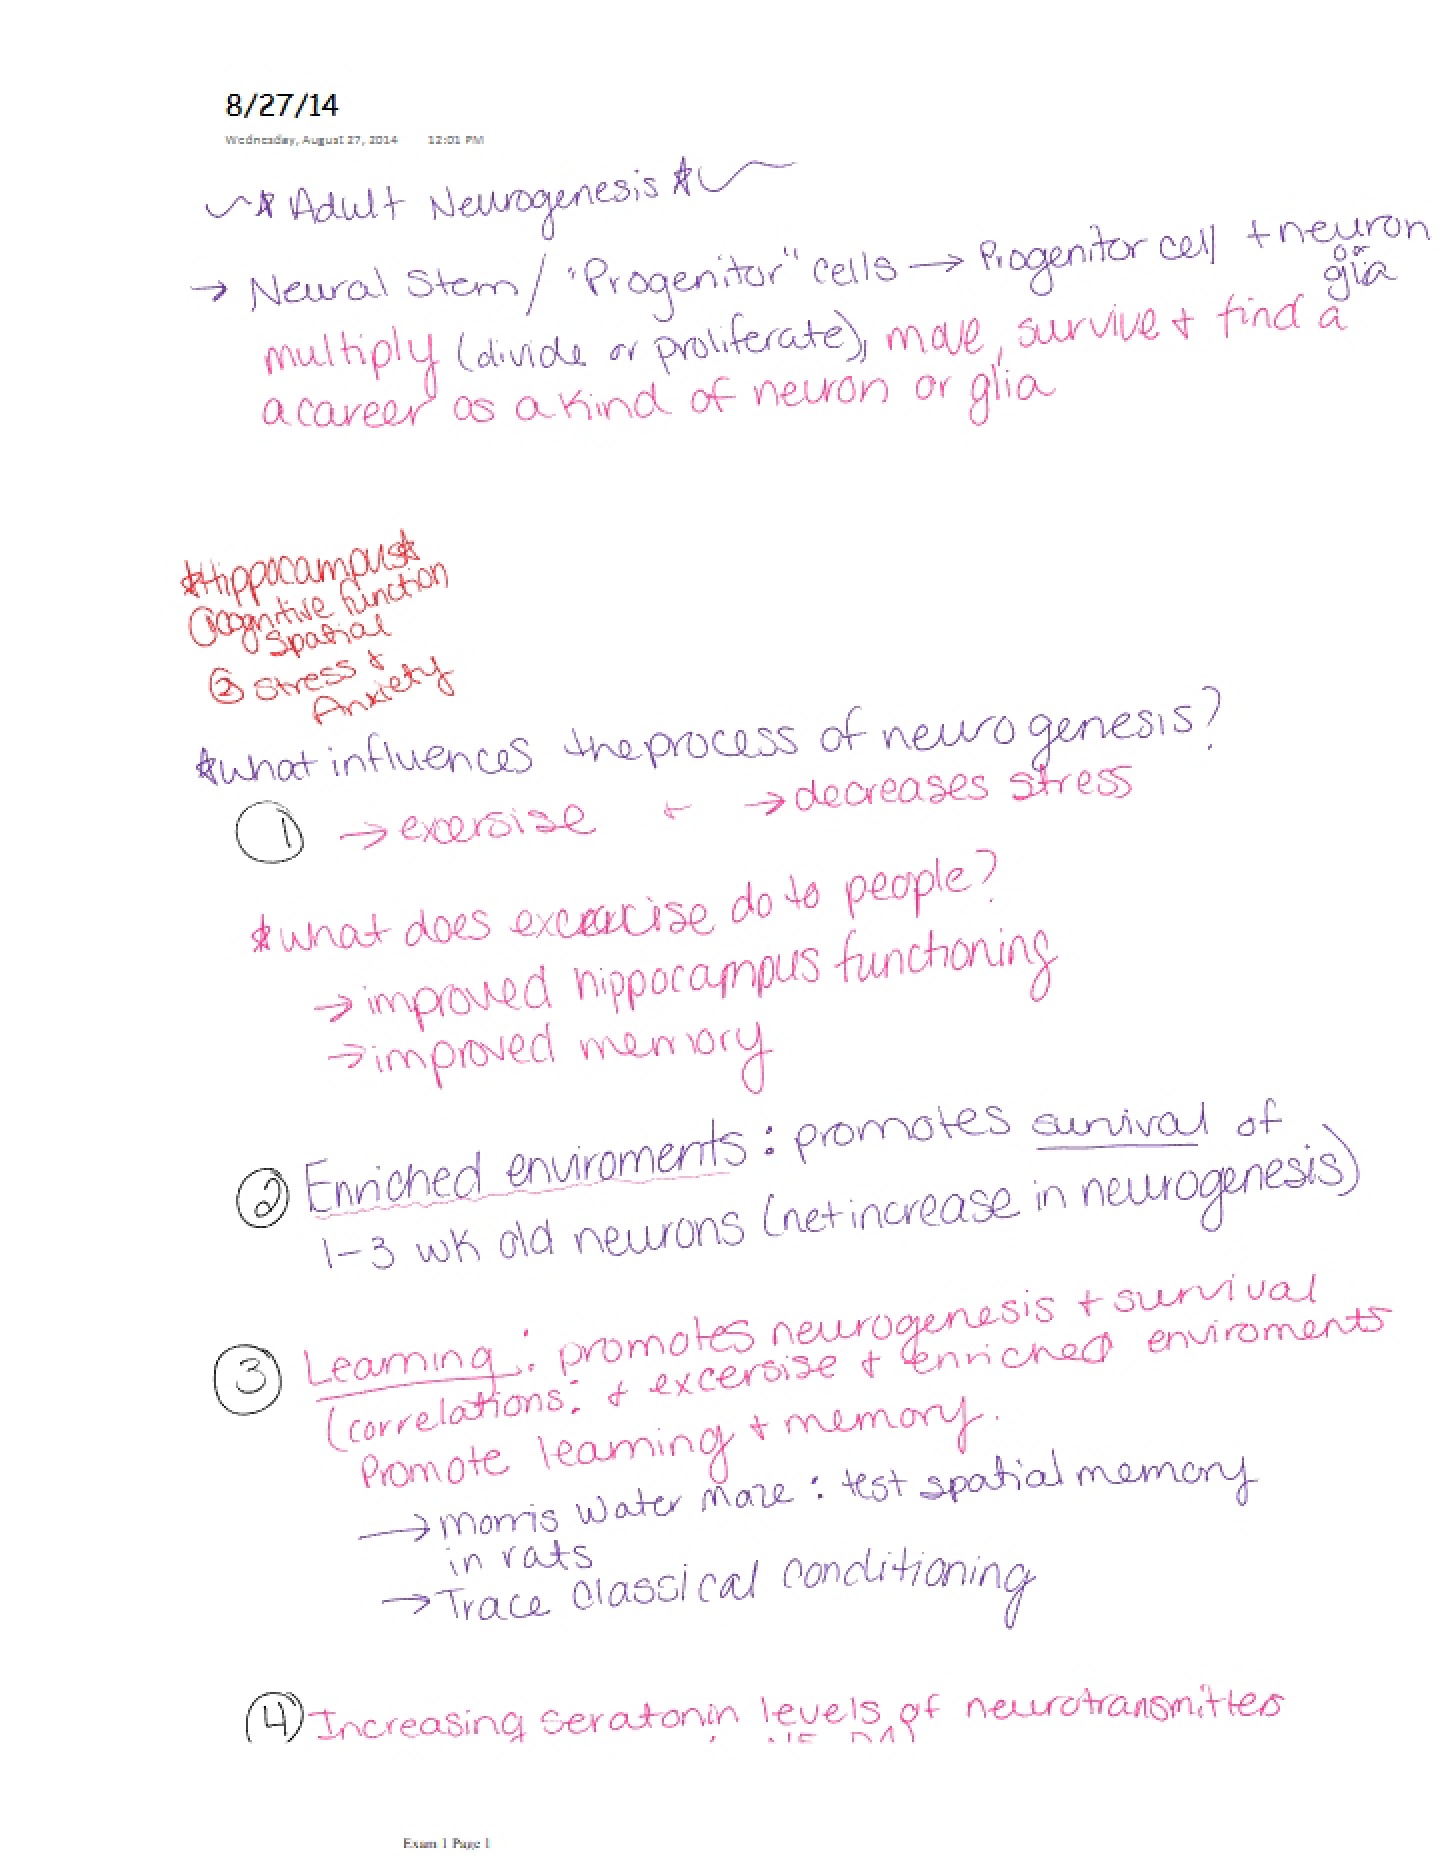 8/27/14
Wednesday, August 27, 2014 12:01 PM
Adult Neurogenesis
→ Neural Stem/ "Progenitor" cells → Progenitor cell + neuron
or
glia
multiply (divide or proliferate), move, survive + find a
a career as a kind of neuron or glia
Hippocampus
① cognitive function
spatial
② stress +
Anxiety
what influences the process of neurogenesis?
① → excersise ← → decreases stress
what does excercise do to people?
→ improved hippocampus functioning
→ improved memory
② Enriched enviroments: promotes survival of
1-3 wk old neurons (net increase in neurogenesis)
③ Learning: promotes neurogenesis + survival
(correlations: + excersise + enriched enviroments
Promote learning + memory.
→ Morris Water Maze: test spatial memory
in rats
→ Trace Classical conditioning
④ Increasing seratonin levels of neurotransmitters
Exam 1 Page 1